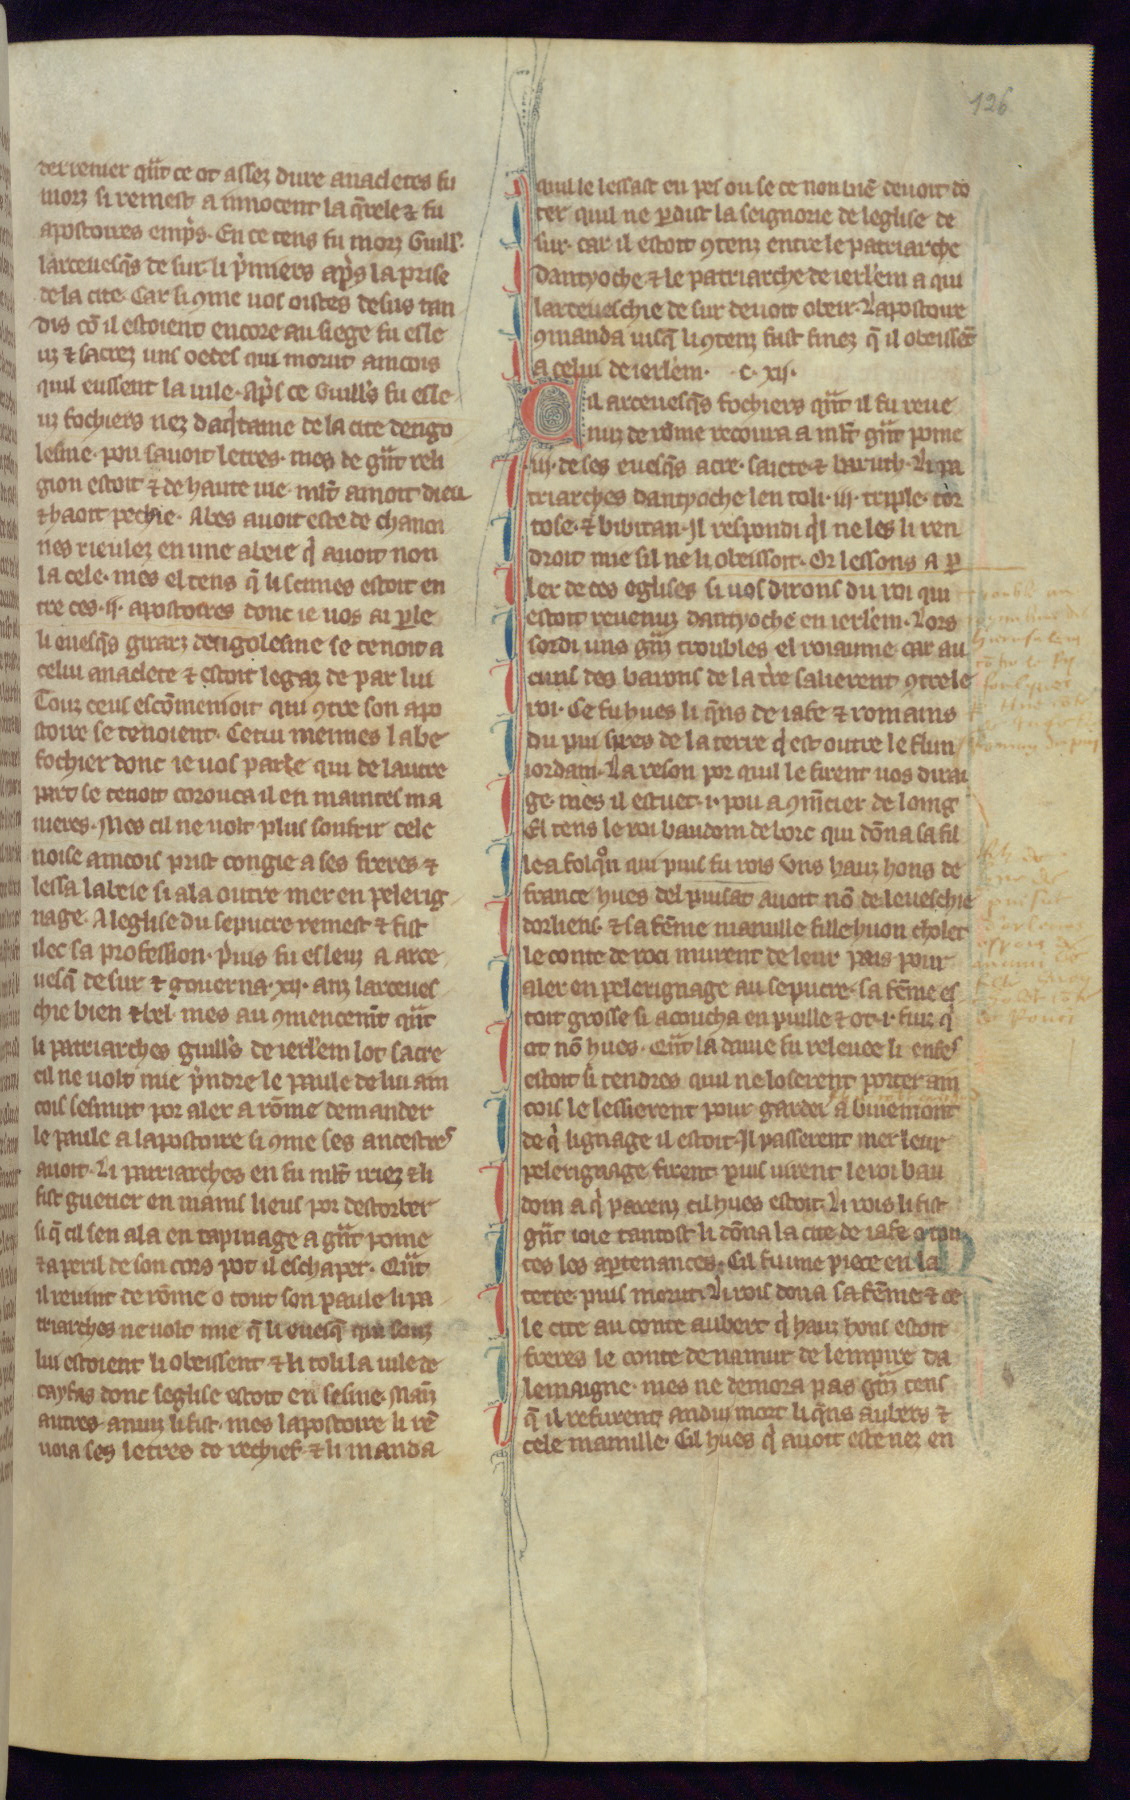 126
derrenier q̃nt ce ot assez dure anacletes fu
morz si remest a innocent la q̃rele ⁊ fu
apostoires emp̃s. En ce tens fu morz Guill'.
larcevesq̃s de sur. li p̃miers ap̃s la prise
de la cite. Car si ꝯme vos oistes desus tan
dis cõ il estoient encore au siege fu esle
uz ⁊ sacrez uns oedes qui morut aincois
quil eussent la vile. Ap̃s ce Guill's fu esle
uz fochiers nez daq̃taine de la cite dengo
lesme. pou savoit letres. mes de g̃nt reli
gion estoit ⁊ de haute vie. ml't amoit dieu
⁊ haoit pechie. Abes avoit este de chanoi
nes rieulez en une abeie q̃ avoit non
la cele. mes el tens q̃ li scimes estoit en
tre ces .ij. apostoires donc ie vos ai ꝑle
li evesq̃s girarz dengolesme se tenoit a
celui anaclete ⁊ estoit legaz de par lui
Touz ceus escõmenioit qui ꝯtre son apo
stoire se tenoient. Cetui meimes labe
fochier donc ie vos parle qui de lautre
part se tenoit corouca il en maintes ma
nieres. Mes cil ne volt plus soufrir cele
noise aincois prist congie a ses freres ⁊
lessa labeie si ala outre mer en pelerig
nage. A leglise du sepucre remest ⁊ fist
ilec sa profession. puis fu esleuz a arce
vesq̃ de sur ⁊ governa .xij. anz larceves
chie bien ⁊ bel. mes au ꝯmencem̃t q̃nt
li patriarches guill's de ierl'em lot sacre
cil ne volt mie p̃ndre le paule de lui ain
cois sesmut por aler a rõme demander
le paule a lapostoire si ꝯme ses ancestres
avoit. Li patriarches en fu ml't iriez ⁊ li
fist guetier en mains lieus por destorber
si q̃ cil sen ala en tapinage a g̃nt poine
⁊ a peril de son cors pot il eschaper. Q̃nt
il revint de rõme o tout son paule li pa
triarches ne volt mie q̃ li evesq̃ qui souz
lui estoient li obeissent ⁊ li toli la vile de
cayfas donc leglise estoit en sesine. Mainz
autres anuiz li fist. mes lapostoire li rẽ
voia ses letres de rechief. ⁊ li manda
quil le lessast en pes ou se ce non bñ devoit do
ter quil ne ꝑdist la seignorie de leglise de
sur. car il estoit ꝯtenz entre le patriarche
dantyoche ⁊ le patriarche de ierl'em a qui
larceveschie de sur devoit obeir. Lapostoire
ꝯmanda iusq̃ li ꝯtenz fust finez q̃ il obeissẽt
a celui de ierl'em. c. xij.
Cil arcevesq̃s fochiers q̃nt il fu reve
nuz de rõme recovra a ml't g̃nt poine
.iij. de ses evesq̃s acre. saiete. ⁊ baruth. Li pa
triarches dantyoche len toli .iij. triple. tor
tose. ⁊ bibitan. Il respondi q̃l ne les li ren
droit mie sil ne li obeissoit. Or lessons a ꝑ
ler de ces eglises si vos dirons du roi qui
estoit revenuz dantyoche en ierl'em. Lors
sordi uns g̃nz troubles el roiaume. car au
cuns des barons de la t̃re salierent ꝯtre le
roi. Ce fu hues li q̃ns de iafe ⁊ romains
du pui sires de la terre q̃ est outre le flun
iordain. La reson por quil le firent vos dirai
ge. mes il estuet .i. pou a ꝯm̃cier de loing
El tens le roi baudoin de borc qui dõna sa fil
le a folq̃n qui puis fu rois Uns hauz hons de
france hues del puisat avoit nõ de leveschie
dorliens. ⁊ sa fẽme mamille fille huon cholet
le conte de roci murent de leur pais pour
aler en pelerignage au sepucre. sa fẽme es
toit grosse si acoucha en puille ⁊ ot .i. fiuz q̃
ot nõ hues. Q̃nt la dame fu relevee li enfes
estoit si tendres quil ne loserent porter ain
cois le lessierent pour garder a buiemont
de q̃ lignage il estoit. Il passerent mer leur
pelerignage firent. puis virent le roi bau
doin a q̃ parenz cil hues estoit. Li rois li fist
g̃nt ioie tantost li dõna la cite de iafe o tou
tes les apertenances. Cil fu une piece en la
terre. puis morut. Li rois dona sa fẽme ⁊ ce
le cite au conte aubert q̃ hauz hons estoit
freres le conte de namur de lempire da
lemaigne. mes ne demora pas g̃nz tens
q̃ il refurent andui mort li q̃ns aubers ⁊
cele mamille. Cil hues q̃ avoit este nez en